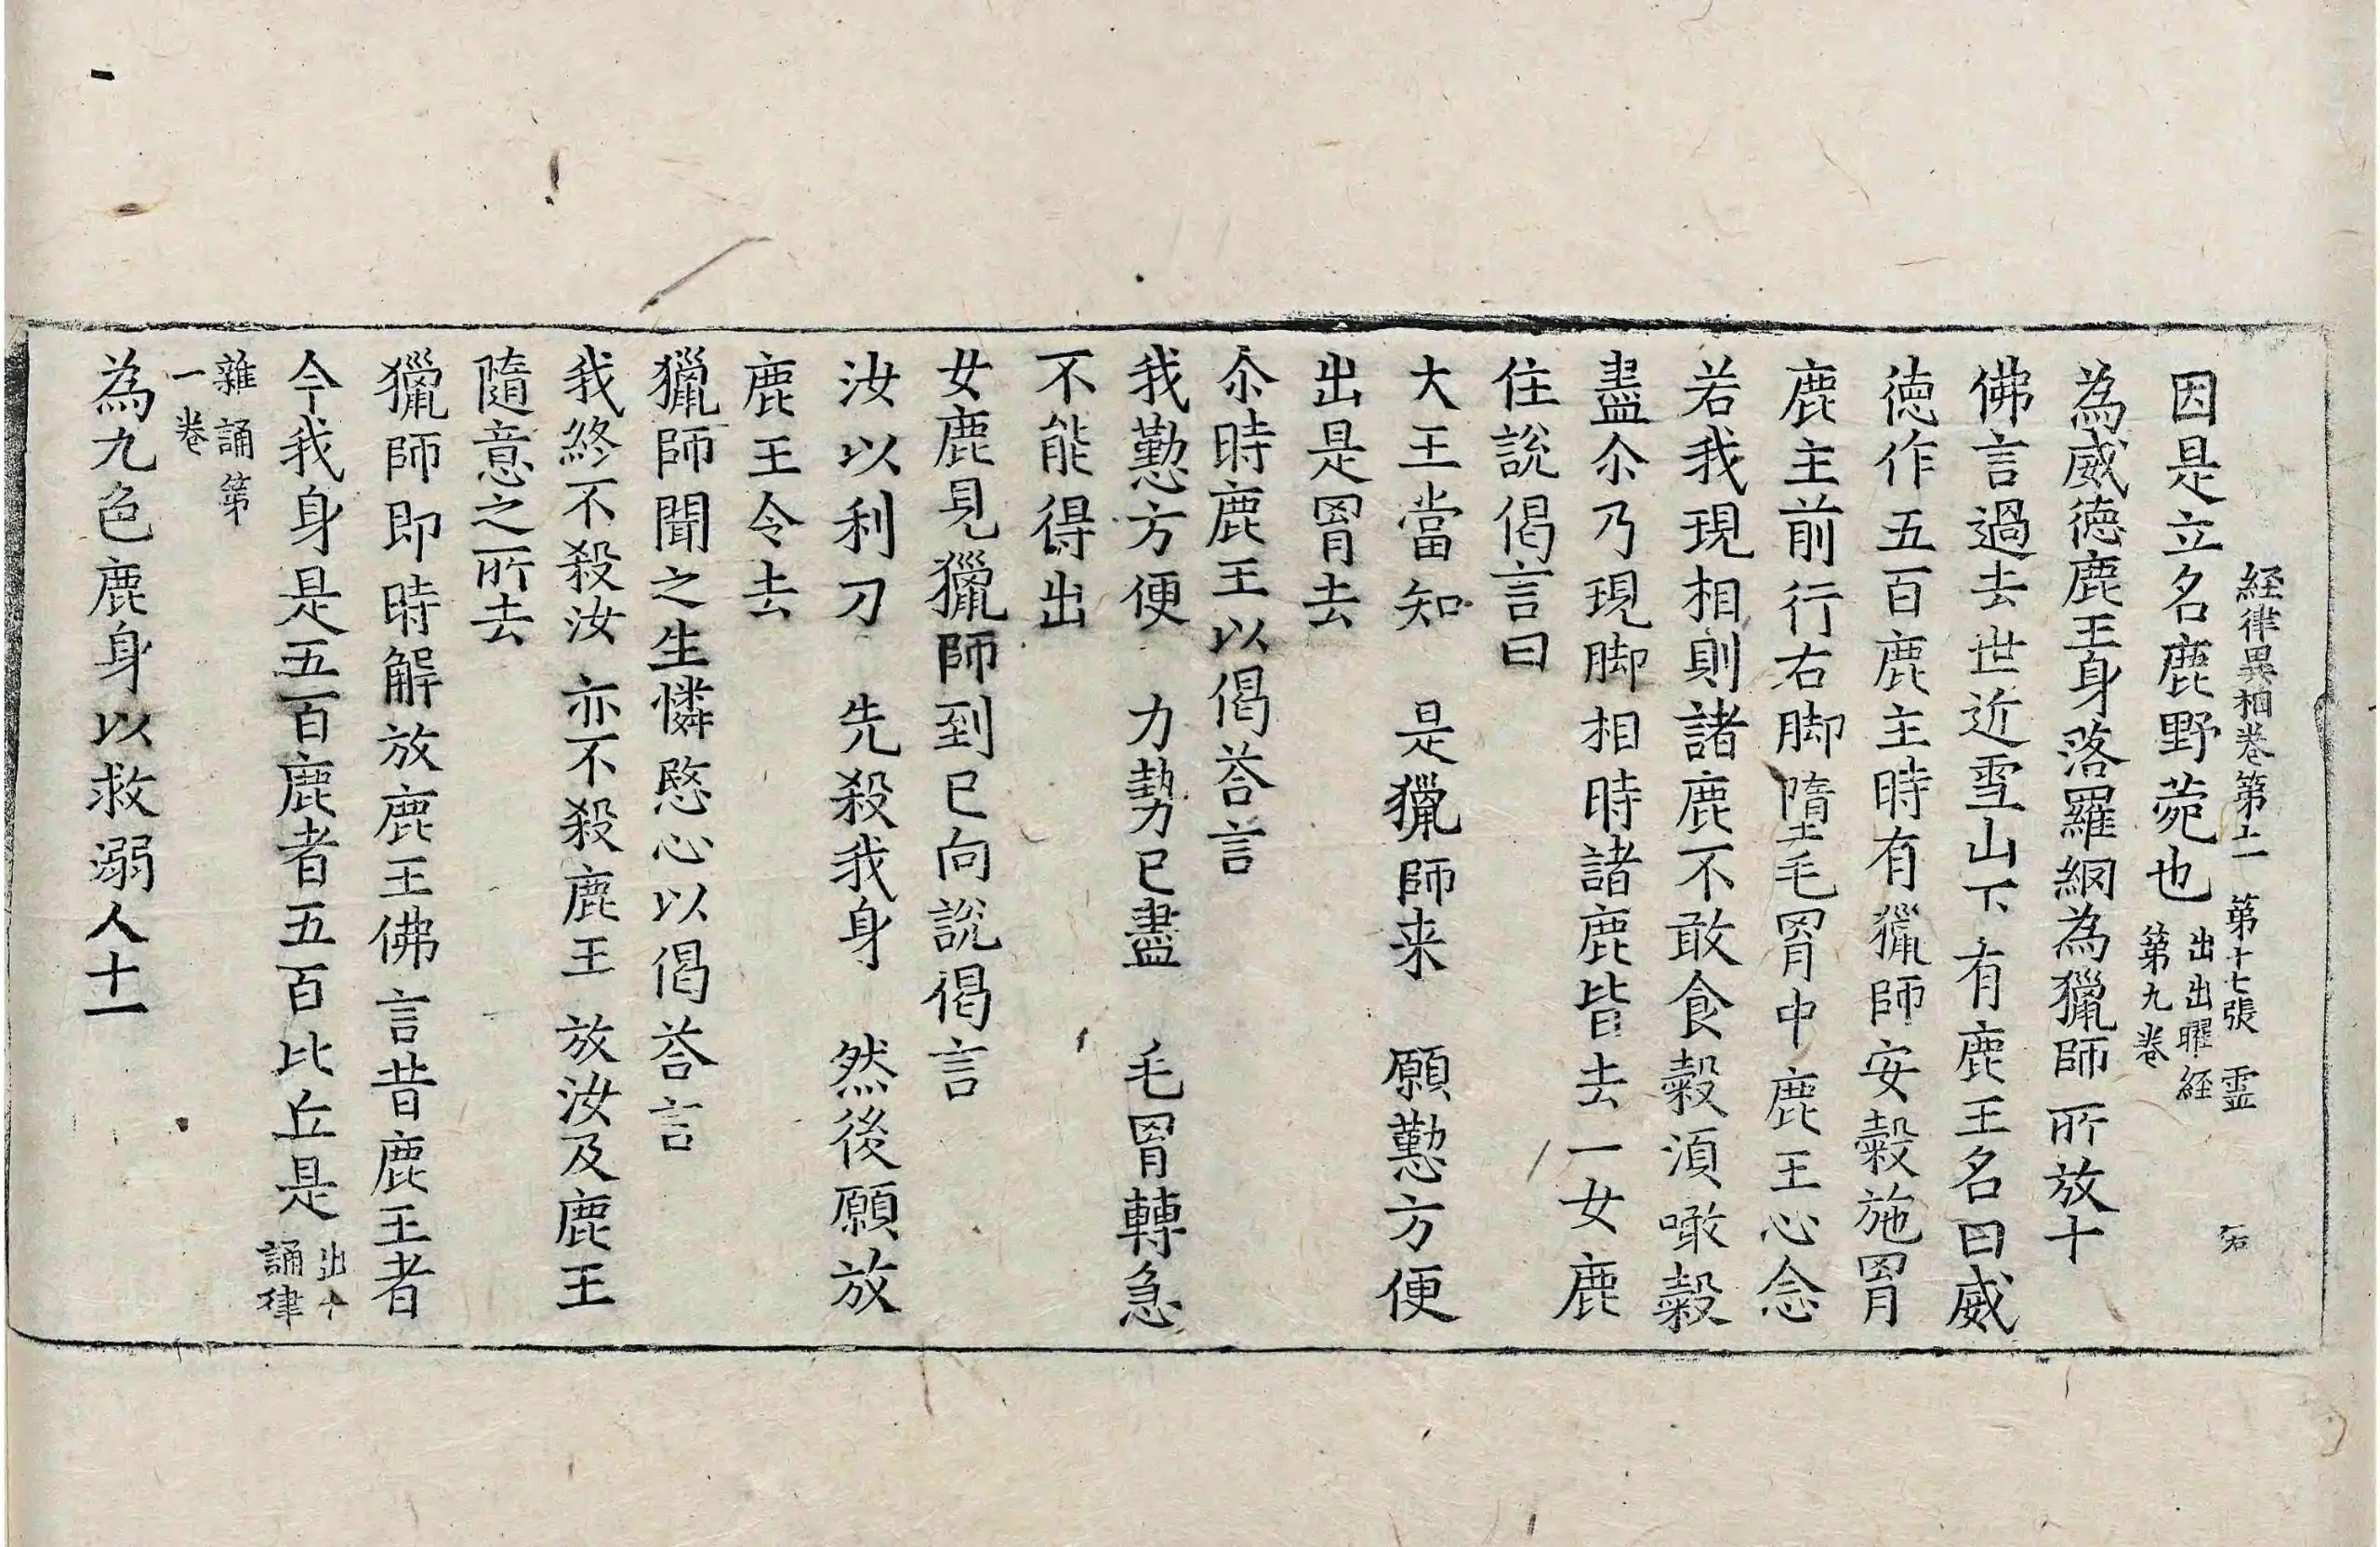 経律異相卷第十一　第十七張　霊　石
因是立名鹿野菀也
出出曜経
第九卷
為威德鹿王身落羅網為獵師所放十
佛言過去世近雪山下有鹿王名曰威
徳作五百鹿主時有獵師安糓施罥
鹿主前行右脚墮毛罥中鹿王心念
若我現相則諸鹿不敢食糓湏噉糓
盡尒乃現脚相時諸鹿皆去一女鹿
住說偈言曰
大王當知　是獵師来　願懃方便
出是罥去
尒時鹿王以偈荅言
我懃方便　力勢已盡　毛罥轉急
不能得出
女鹿見獵師到已向說偈言
汝以利刀　先殺我身　然後願放
鹿王令去
獵師聞之生憐愍心以偈荅言
我終不殺汝　亦不殺鹿王　放汝及鹿王
隨意之所去
獵師即時解放鹿王佛言昔鹿王者
今我身是五百鹿者五百比丘是
出十
誦律
雜誦第
一卷
為九色鹿身以救溺人十一